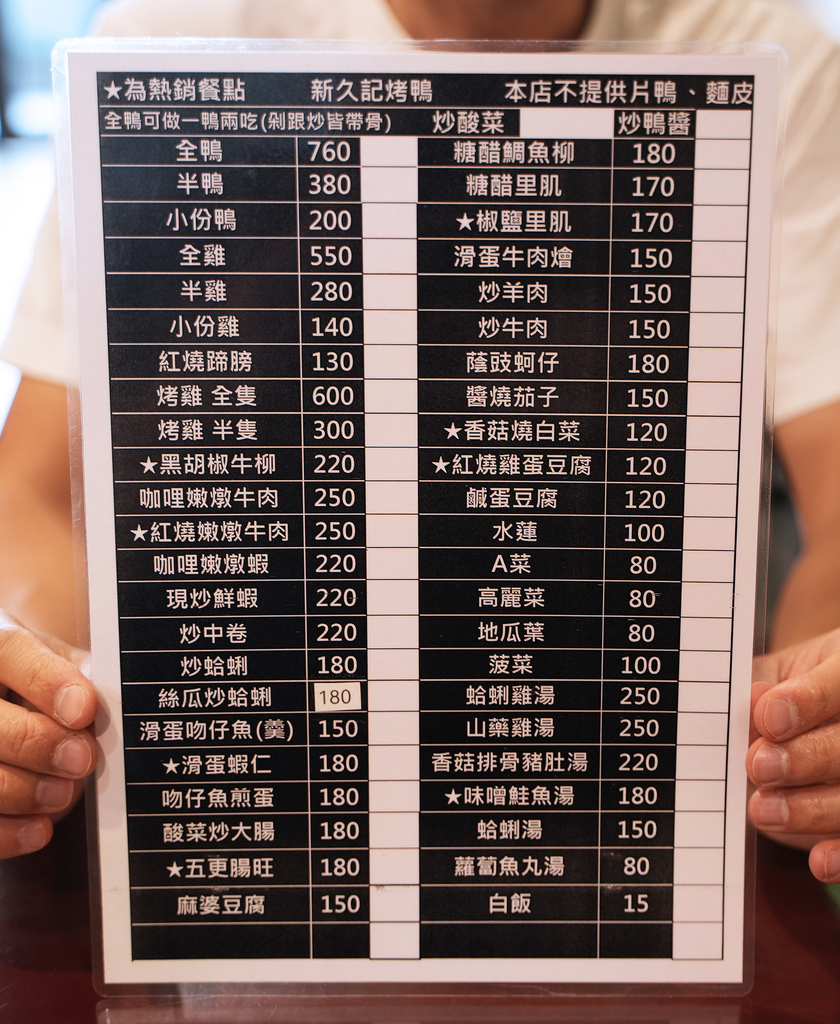 ★為熱銷餐點 新久記烤鴨 本店不提供片鴨、麵皮
全鴨可做一鴨兩吃(剁跟炒皆帶骨) 炒酸菜 炒鴨醬
全鴨 760 糖醋鯛魚柳 180
半鴨 380 糖醋里肌 170
小份鴨 200 ★椒鹽里肌 170
全雞 550 滑蛋牛肉燴 150
半雞 280 炒羊肉 150
小份雞 140 炒牛肉 150
紅燒蹄膀 130 蔭豉蚵仔 180
烤雞 全隻 600 醬燒茄子 150
烤雞 半隻 300 ★香菇燒白菜 120
★黑胡椒牛柳 220 ★紅燒雞蛋豆腐 120
咖哩嫩燉牛肉 250 鹹蛋豆腐 120
★紅燒嫩燉牛肉 250 水蓮 100
咖哩嫩燉蝦 220 A菜 80
現炒鮮蝦 220 高麗菜 80
炒中卷 220 地瓜葉 80
炒蛤蜊 180 菠菜 100
絲瓜炒蛤蜊 180 蛤蜊雞湯 250
滑蛋吻仔魚(羹) 150 山藥雞湯 250
★滑蛋蝦仁 180 香菇排骨豬肚湯 220
吻仔魚煎蛋 180 ★味噌鮭魚湯 180
酸菜炒大腸 180 蛤蜊湯 150
★五更腸旺 180 蘿蔔魚丸湯 80
麻婆豆腐 150 白飯 15